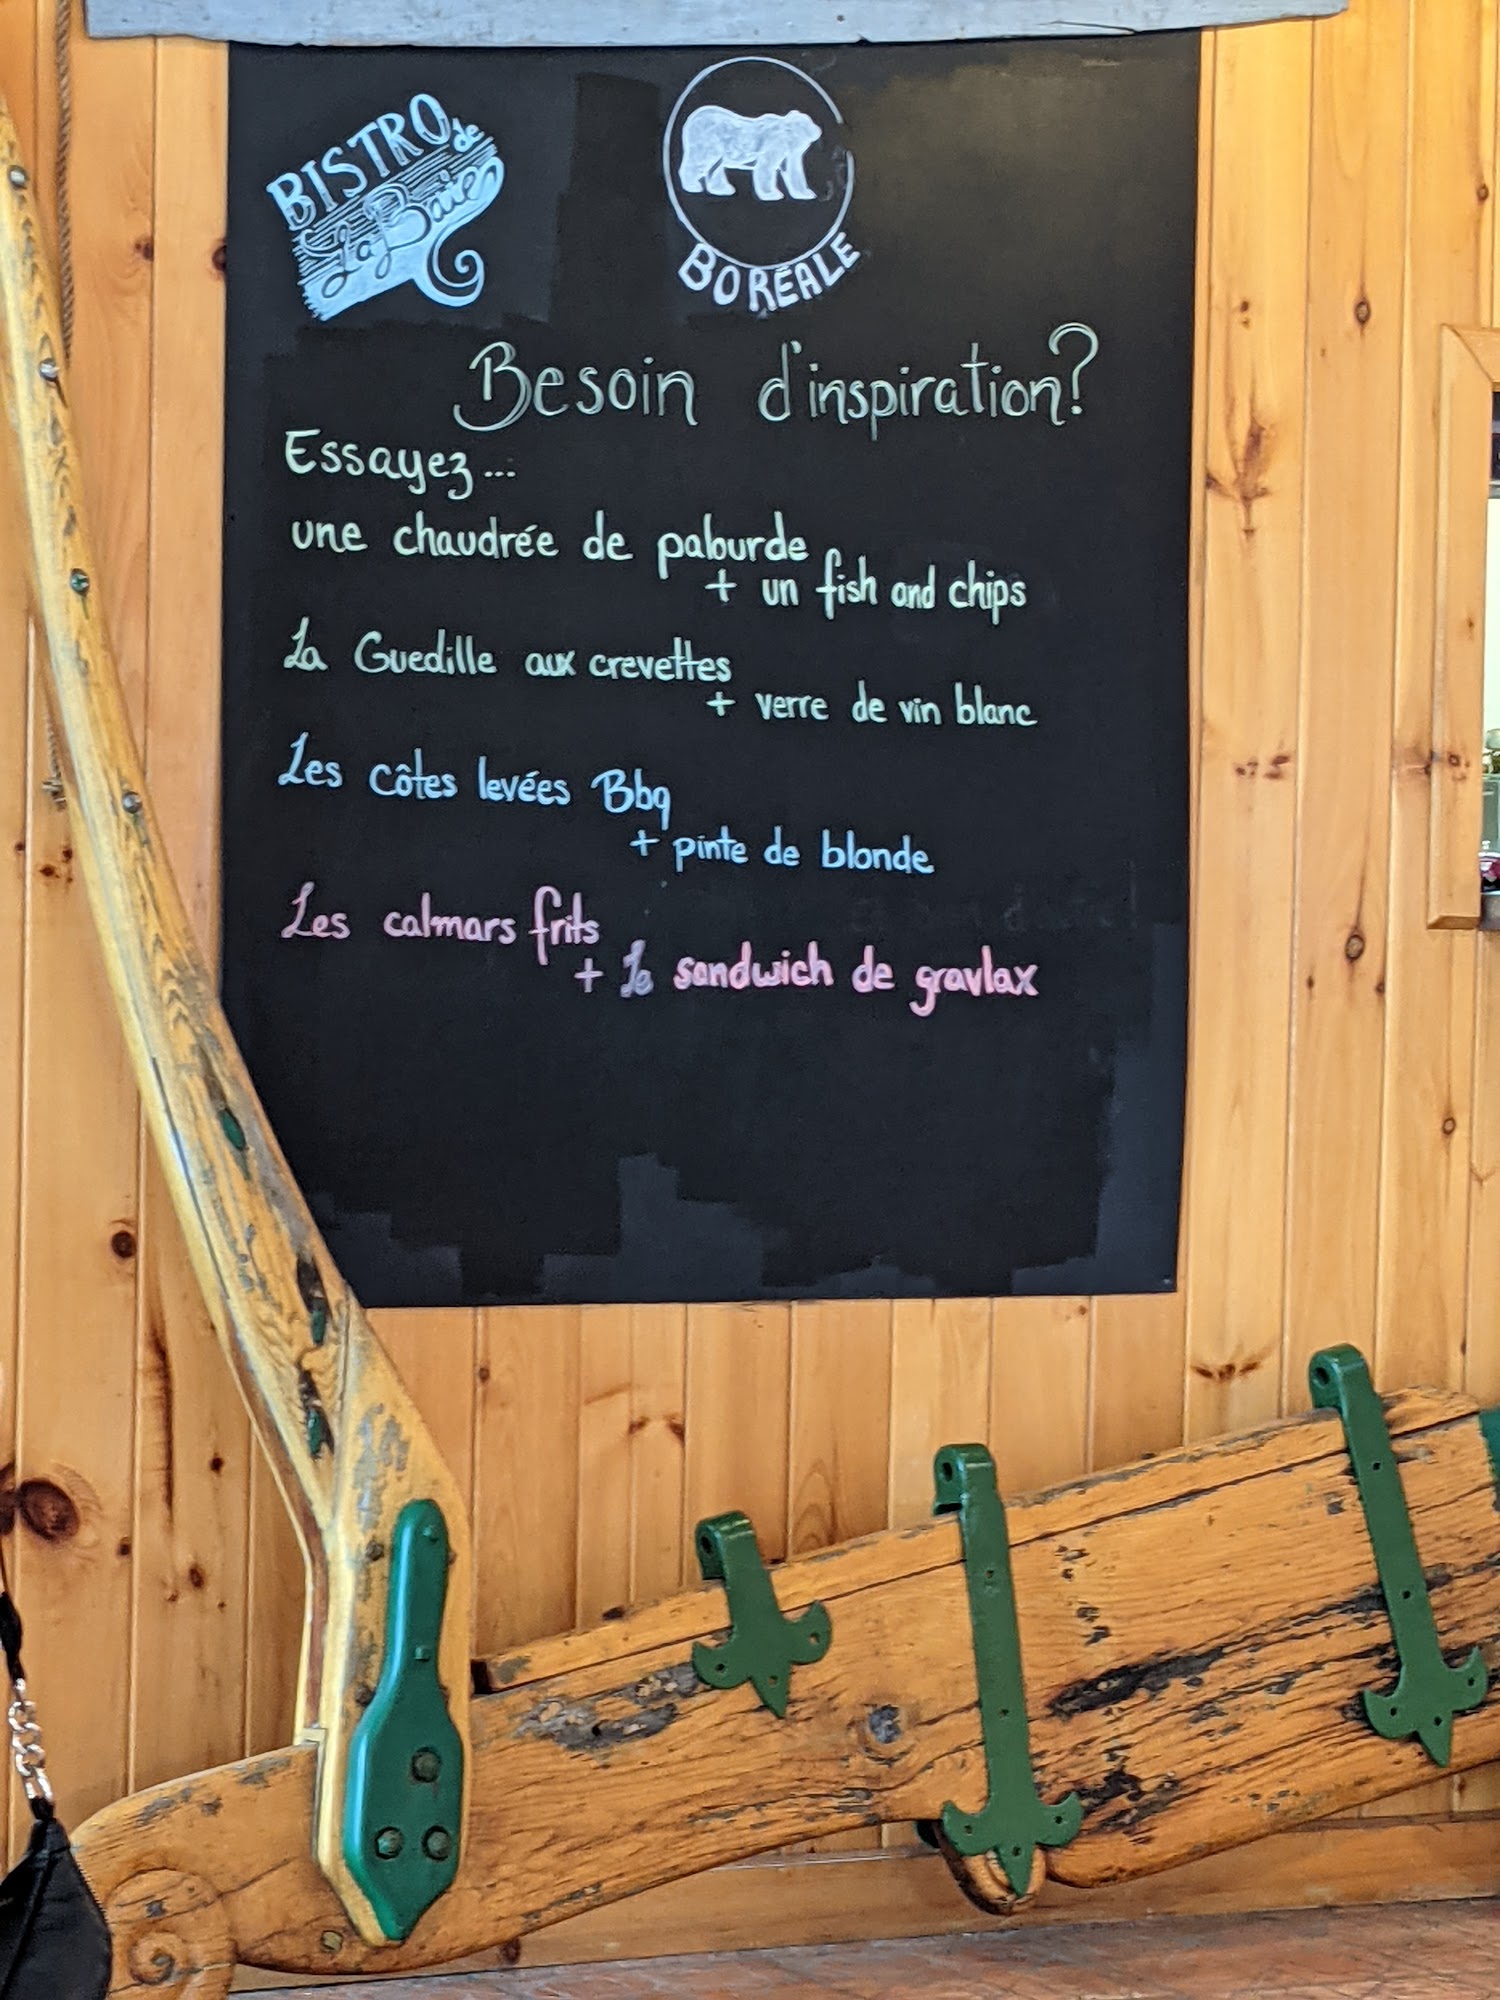 BISTRO de
La Baie
BORÉALE
Besoin d'inspiration?
Essayez...
une chaudrée de paburde
+ un fish and chips
La Guedille aux crevettes
+ verre de vin blanc
Les côtes levées Bbq
+ pinte de blonde
Les calmars frits
+ le sandwich de gravlax